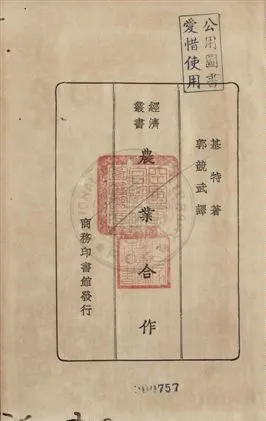 公用圖書
愛惜使用
基特著
郭競武譯
經濟叢書
農業合作
商務印書館發行
757